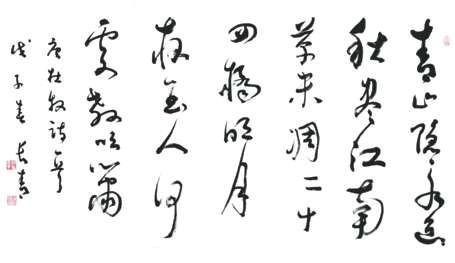 青山隱〻水迢〻
秋盡江南
草未凋二十
四橋明月
夜玉人何
處教吹簫
唐杜牧詩
戊子春